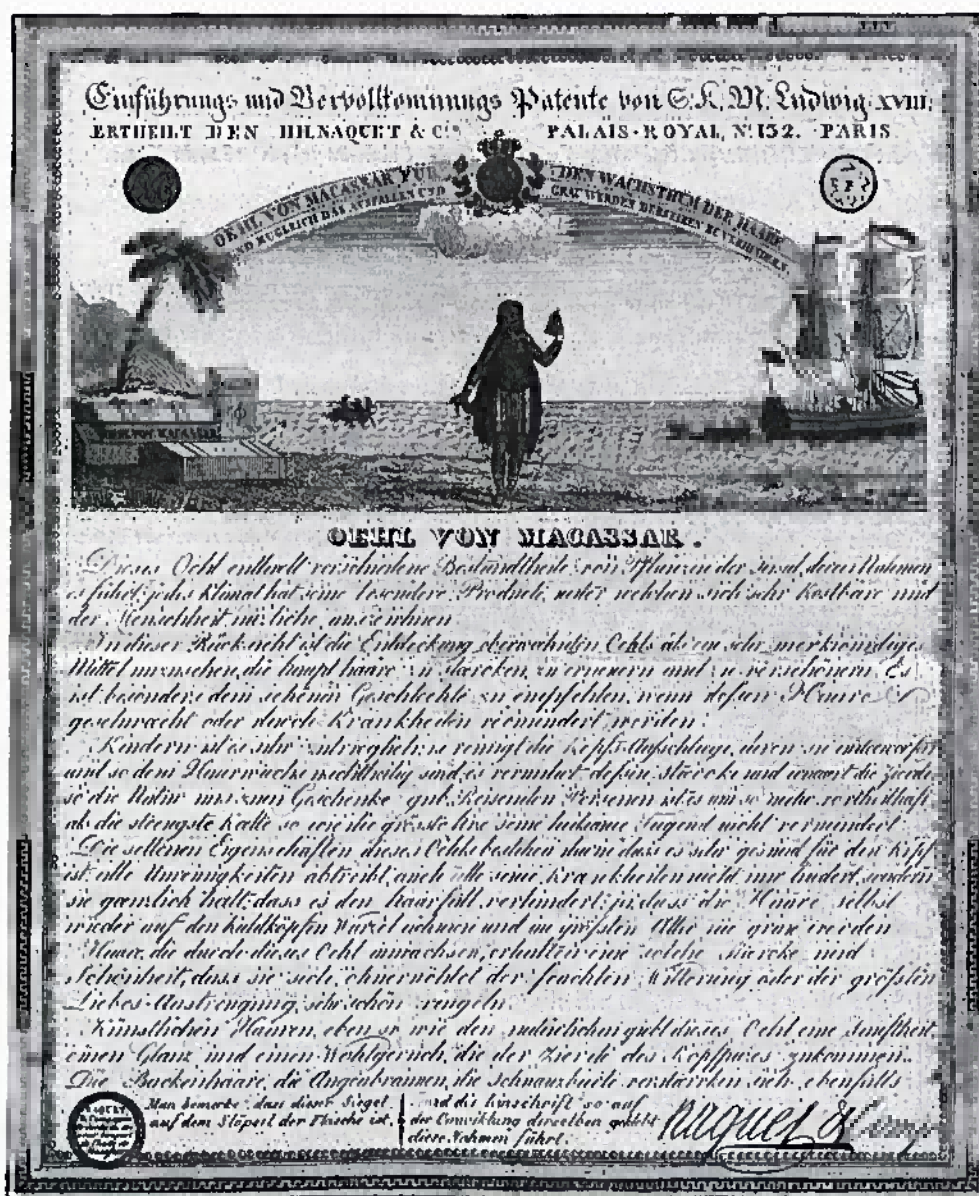 Einführungs und Vervollkommnungs Patente von S. K. M. Ludwig XVIII.
ERTHEILT DEN HH. NAQUET & Cie PALAIS-ROYAL, No. 132. PARIS
OEHL VON MACASSAR FÜR DEN WACHSTHUM DER HAARE
UND ZUGLEICH DAS AUSFALLEN UND GRAU WERDEN DERSELBEN ZU VERHINDERN.
OEHL VON MACASSAR
OEHL VON MACASSAR.
Dieses Oehl enthält verschiedene Bestandtheile von Pflanzen der Insul, deren Nahmen
es führt; jedes Klimat hat seine besondere Producte, unter welchen sich sehr kostbare und
der Menschheit nüzliche, auszeichnen
In dieser Rücksicht ist die Entdeckung oberwähnten Oehls als ein sehr merkwürdiges
Mittel anzusehen, die haupt haare zu staercken, zu erneuern und zu verschönern. Es
ist besonders dem schönen Geschlechte zu empfehlen, wenn dessen Haare
geschwächt oder durch Krankheiten vermindert werden.
Kindern ist es sehr zutraeglich; es reinigt die Kopfs-Aufschläge, deren sie
und so dem Haarwuchs nachtheilig sind, es vermehrt dessen Staercke und die Zierde
so die Natur uns zum Geschenke gab. Reisenden Personen ist es um so mehr vortheilhaft
als die strengste Kälte so wie die grösste Hize seine heilsame Tugend nicht vermindert
Die seltenen Eigenschaften dieses Oehls bestehen darin dass es sehr gesund für den Kopf
ist, alle Unreinigkeiten abtreibt, auch alle seine Krankheiten nicht nur lindert, sondern
sie gaenzlich heilt, dass es den haarfall verhindert, ja, dass die Haare selbst
wieder auf den kahlköpfen Wurzel nehmen und im größten Alter nie grau werden
Haare, die durch dieses Oehl anwachsen, erhalten eine solche Staercke und
Schönheit, dass sie sich, ohnerachtet der feuchten Witterung oder der größten
Liebes-Anstrengung, sehr schön ringeln.
Künstlichen Haaren, eben so wie den natürlichen giebt dieses Oehl eine Sanftheit
einen Glanz und einen Wohlgeruch, die der Zierde des Kopfpuzes zukommen.
Die Backenhaare, die Augenbraunen, die Schnauzbaerte verstärken sich ebenfalls
Man bemerke, dass dieser Siegel
auf dem Stöpsel der Flasche ist,
und die Innschrift so auf
der Einwicklung derselben geklebt
diese Nahmen führt.
Naquet & Comp